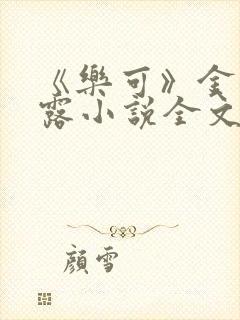 《樂可》金
露小說全文
顏雪